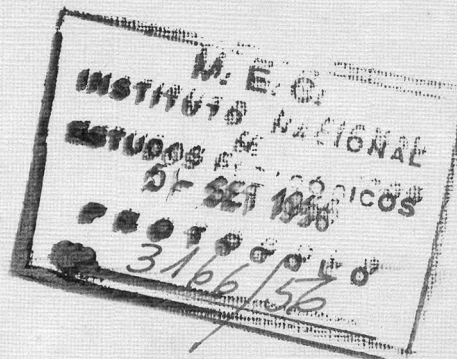 M. E. C.
INSTITUTO NACIONAL
DE
ESTUDOS PEDAGÓGICOS
5 - SET 1956
PROTOCOLO
3166/56